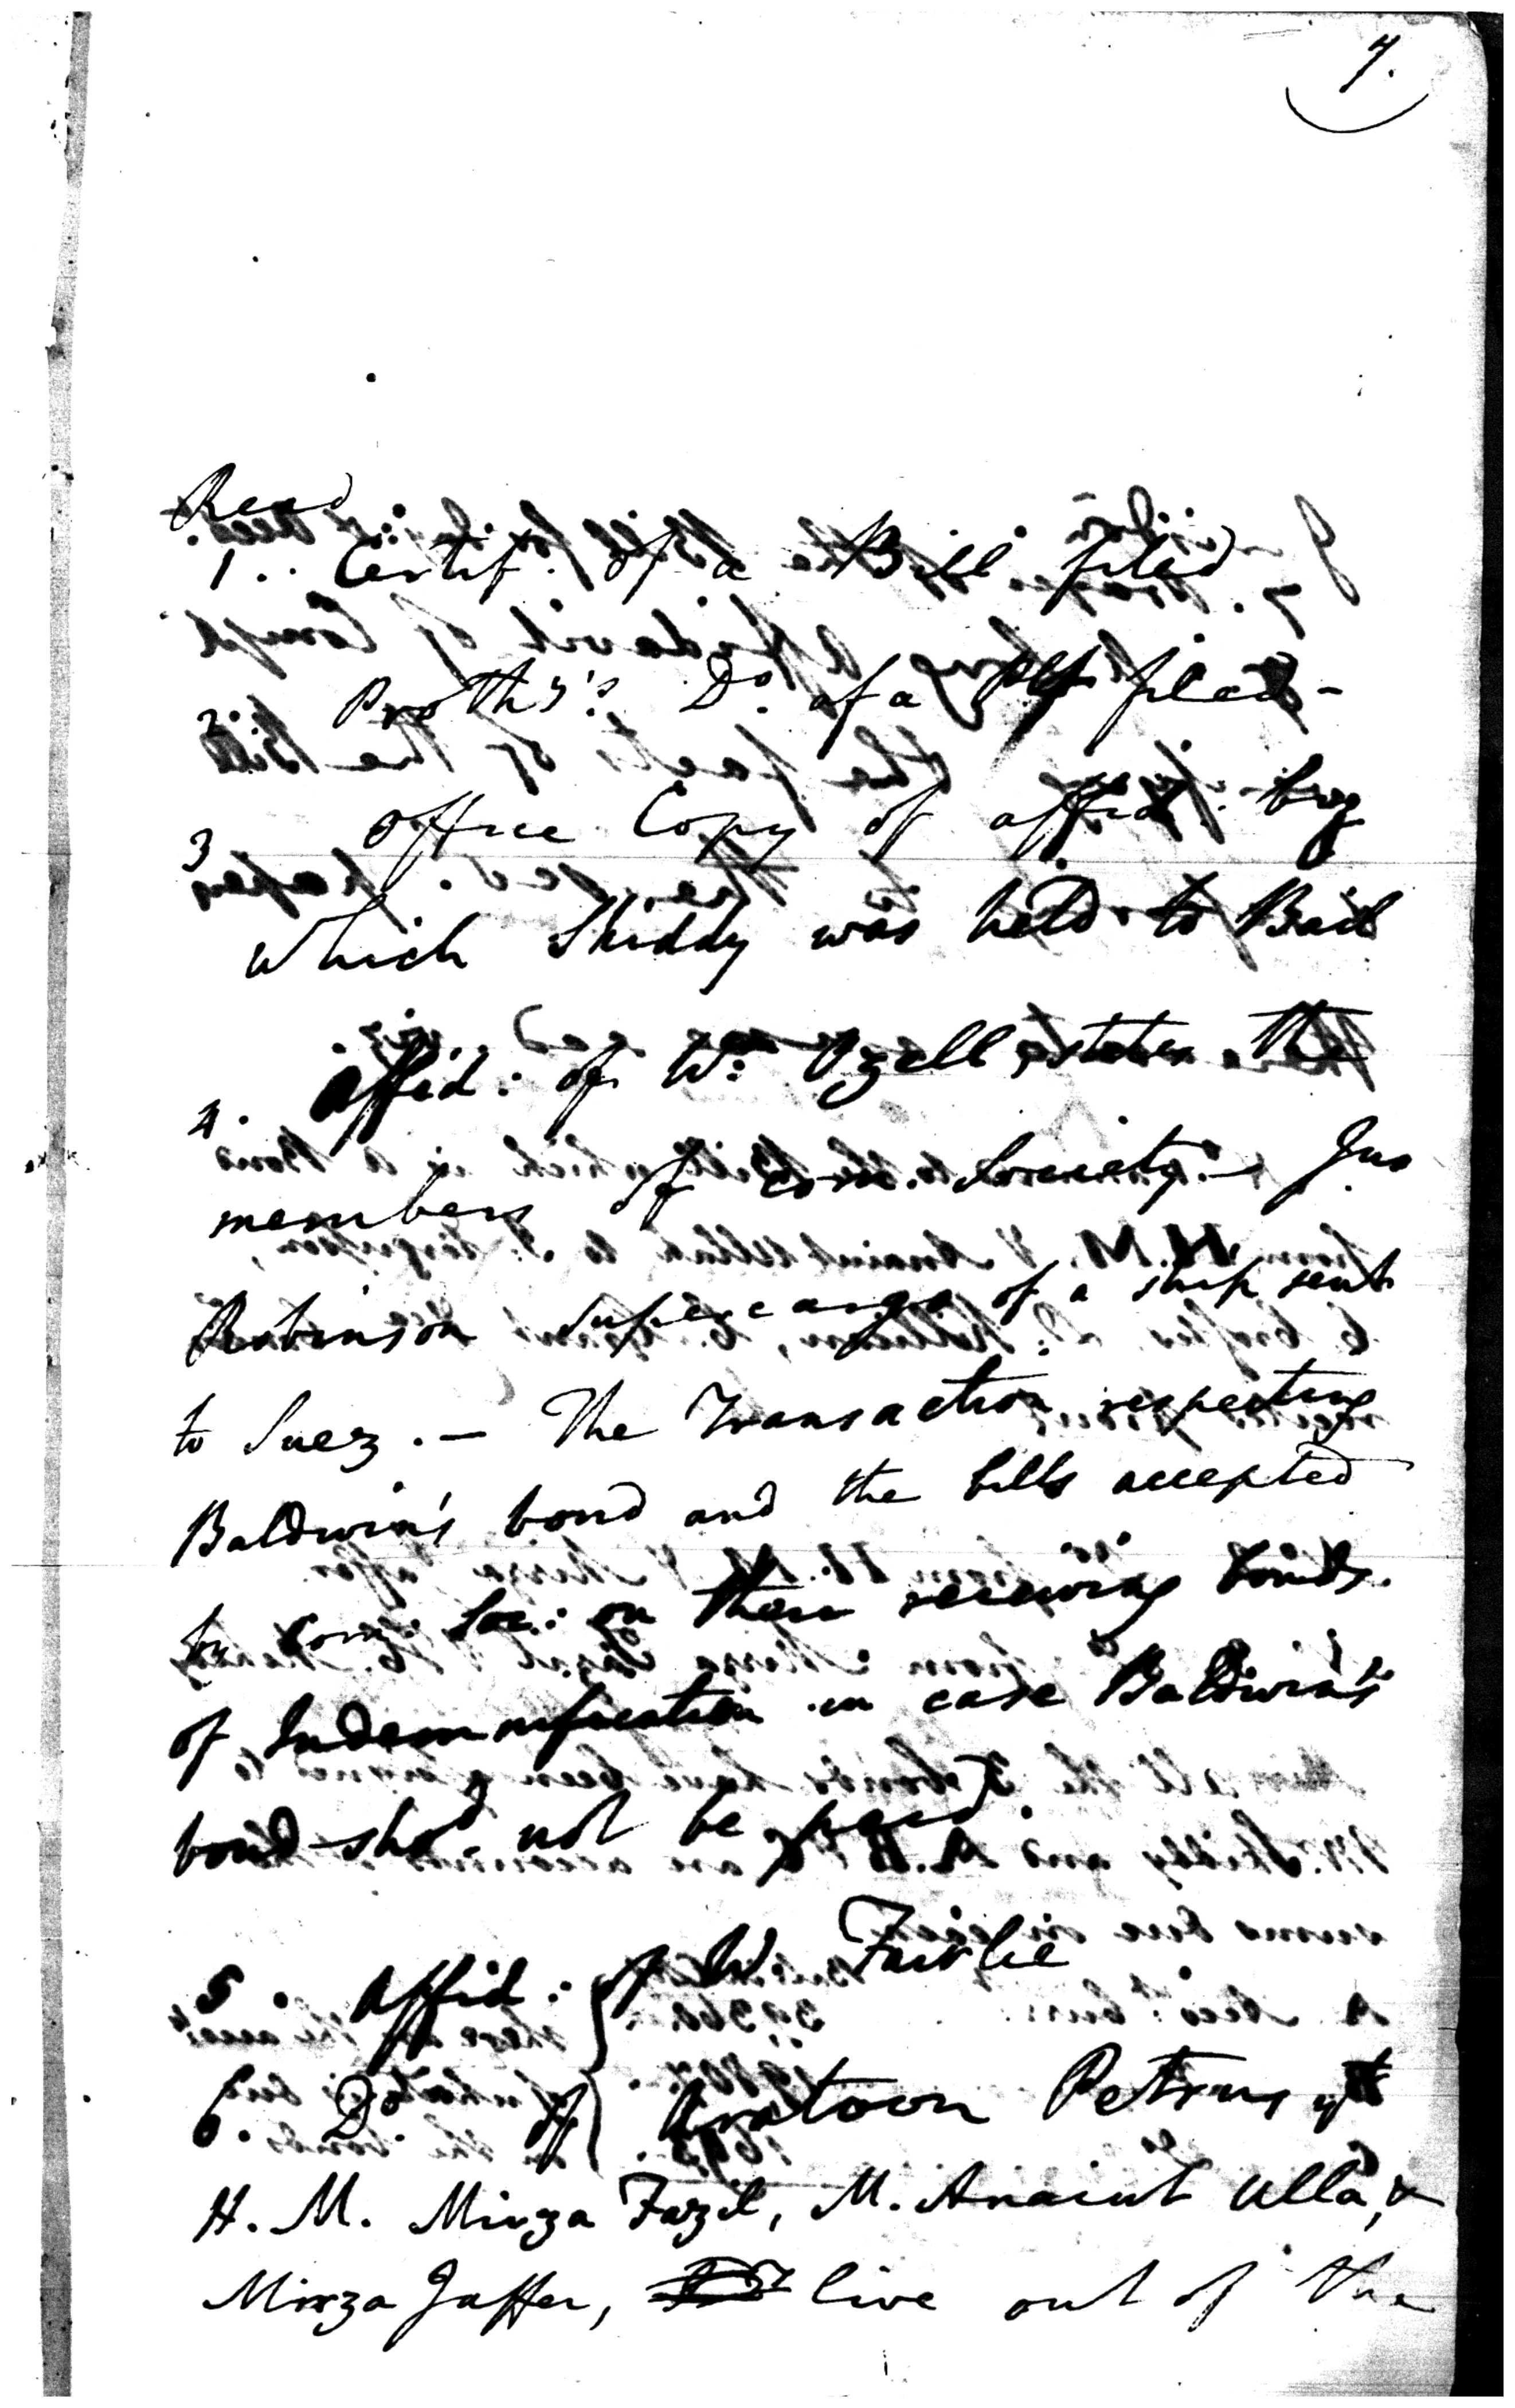 7.
Read
1.. Certif: of a Bill filed
2 Proth'y's Do. of a Plt filed -
3 Office Copy of affid: by
which Skiddy was held to Bail
4. Affid: of Wm Ozell, states the
members of Com. Society - Jno
Robinson supercargo of a ship sent
to Suez. - The Transaction respecting
Baldwin's bond and the bills accepted
by Com: Soc: on their receiving bonds
of Indemnification in case Baldwin's
bond shod. not be paid.
5. Affid: of W Fairlie
6. Do of Aratoon Petrus yt
H. M. Mirza Fazil, M. Anaiut Ulla, &
Mirza Jaffer, live out of the